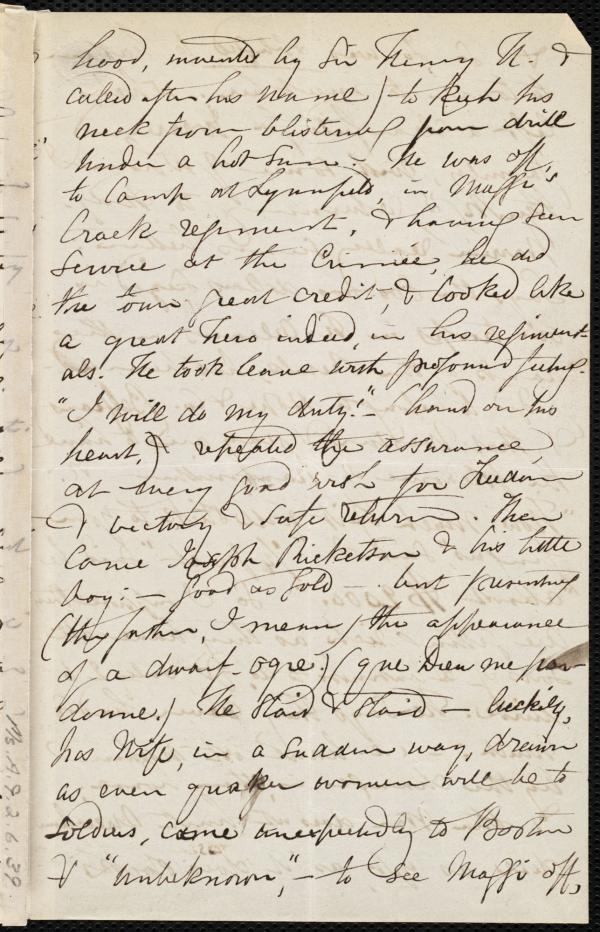 hood, invented by Sir Henry H. &
called after his name) to keep his
neck from blistering from drill
under a hot sun. - He was off,
to Camp at Lynnfield, in Maggi's
Crack regiment, & having seen
service at the Crimea, he did
the town great credit, & looked like
a great hero indeed, in his regiment-
als. He took leave with profound feeling.
"I will do my duty!" - (hand on his
heart,) & repeated the assurance,
at every good wish for Freedom
& victory & safe return. Then
came Joseph Ricketson & his little
boy: - good as gold - but presenting
(the father, I mean) the appearance
of a dwarf-ogre;) (que Dieu me par-
donne.) He staid & staid - luckily,
his Wife, in a sudden way, drawn
as even quaker women will be to
soldiers, came unexpectedly to Boston
& "unbeknown", - to see Maggi off,
Ms.A.9.2.6.39